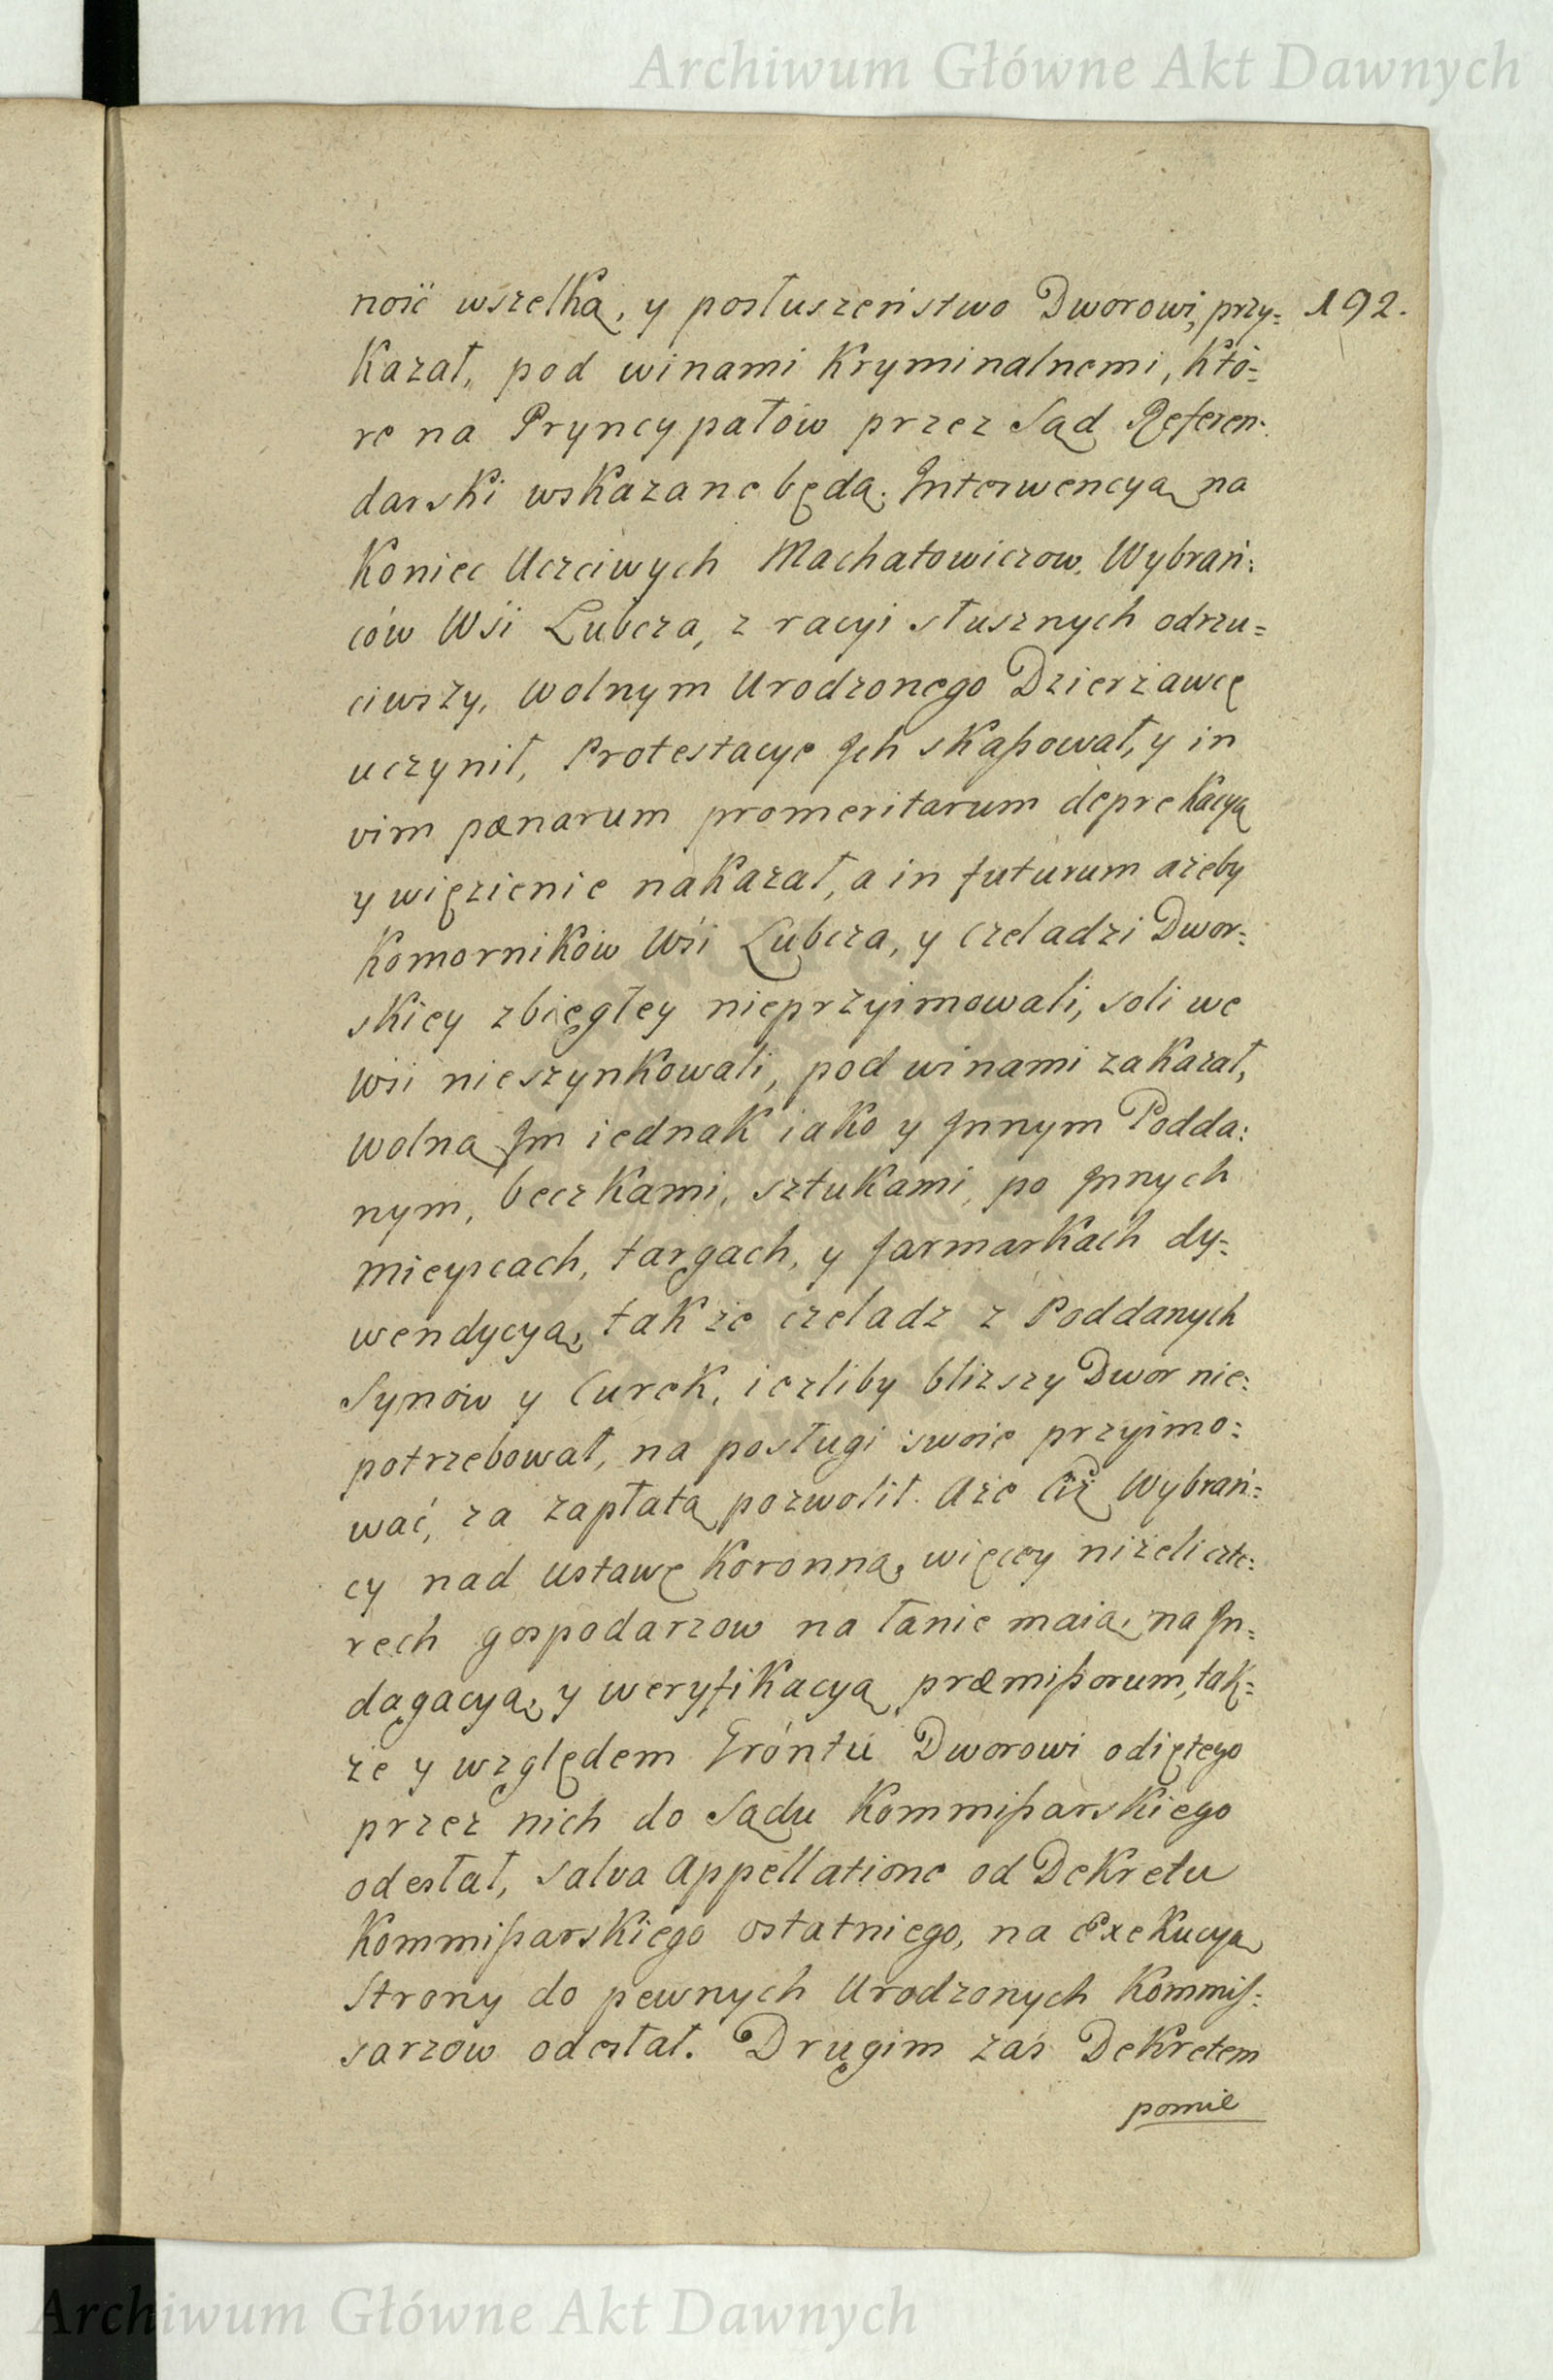 Archiwum Główne Akt Dawnych
ność wszelką, y posłuszeństwo Dworowi, przy= 192.
Kazał, pod winami Kryminalnemi, któ=
re na Pryncypałów przez Sąd Referen=
darski wskazane będą. Interwencyą na
Koniec Uczciwych Machatowiczow, Wybrań=
ców Wśi Lubcza, z racyi słusznych odrzu=
ciwszy, wolnym Urodzonego Dzierżawcę
uczynił, Protestacye Jch skaßował, y in
vim pænarum promeritarum deprekacyą
y więzienie nakazał, a in futurum ażeby
Komorników Wśi Lubcza, y czeladzi Dwor=
skiey zbiegłey nieprzyimowali, soli we
wśi nieszynkowali, pod winami zakazał,
wolną Jm iednak iako y Jnnym Podda=
nym, beczkami, sztukami, po Jnnych
mieyscach, targach, y Jarmarkach dy=
wendycyą, także czeladz z Poddanych
Synów y Curek, ieżliby bliższy Dwor nie=
potrzebował, na posługi swoie przyimo=
wać, za zapłatą pozwolił. Aże Ciż Wybrań=
cy nad ustawę Koronną, więcey niżeli czte=
rech gospodarzow na łanie maią, na Jn=
dagacyą, y weryfikacyą præmißorum, tak=
że y względem Gróntu Dworowi odiętego
przez nich do Sądu Kommißarskiego
odesłał, salva Appellatione od Dekretu
Kommißarskiego ostatniego, na Exekucyą
Strony do pewnych Urodzonych Kommis=
sarzow odesłał. Drugim zaś Dekretem
pomie
Archiwum Główne Akt Dawnych